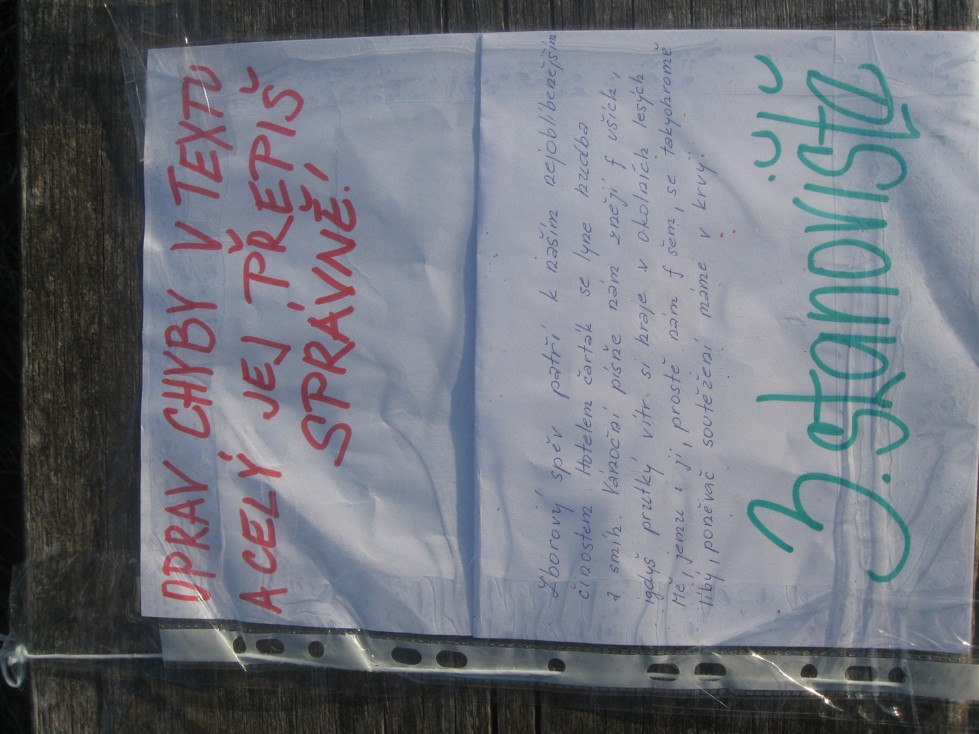 OPRAV CHYBY V TEXTU
A CELÝ JEJ PŘEPIŠ
SPRÁVNĚ!
Zborový spěv patří k našim nejoblíbenějšim
činostem. Hotelem čarták se lyne hudba
a smih. Vánoční písňe nám znějí f ušich,
igdyš prutký vítr si hraje v okolních lesých.
Mě, jemu i jí prostě nám fšem, se takyohromě
líbý, poněvač soutěžení máme v krvy.
3. stanoviště